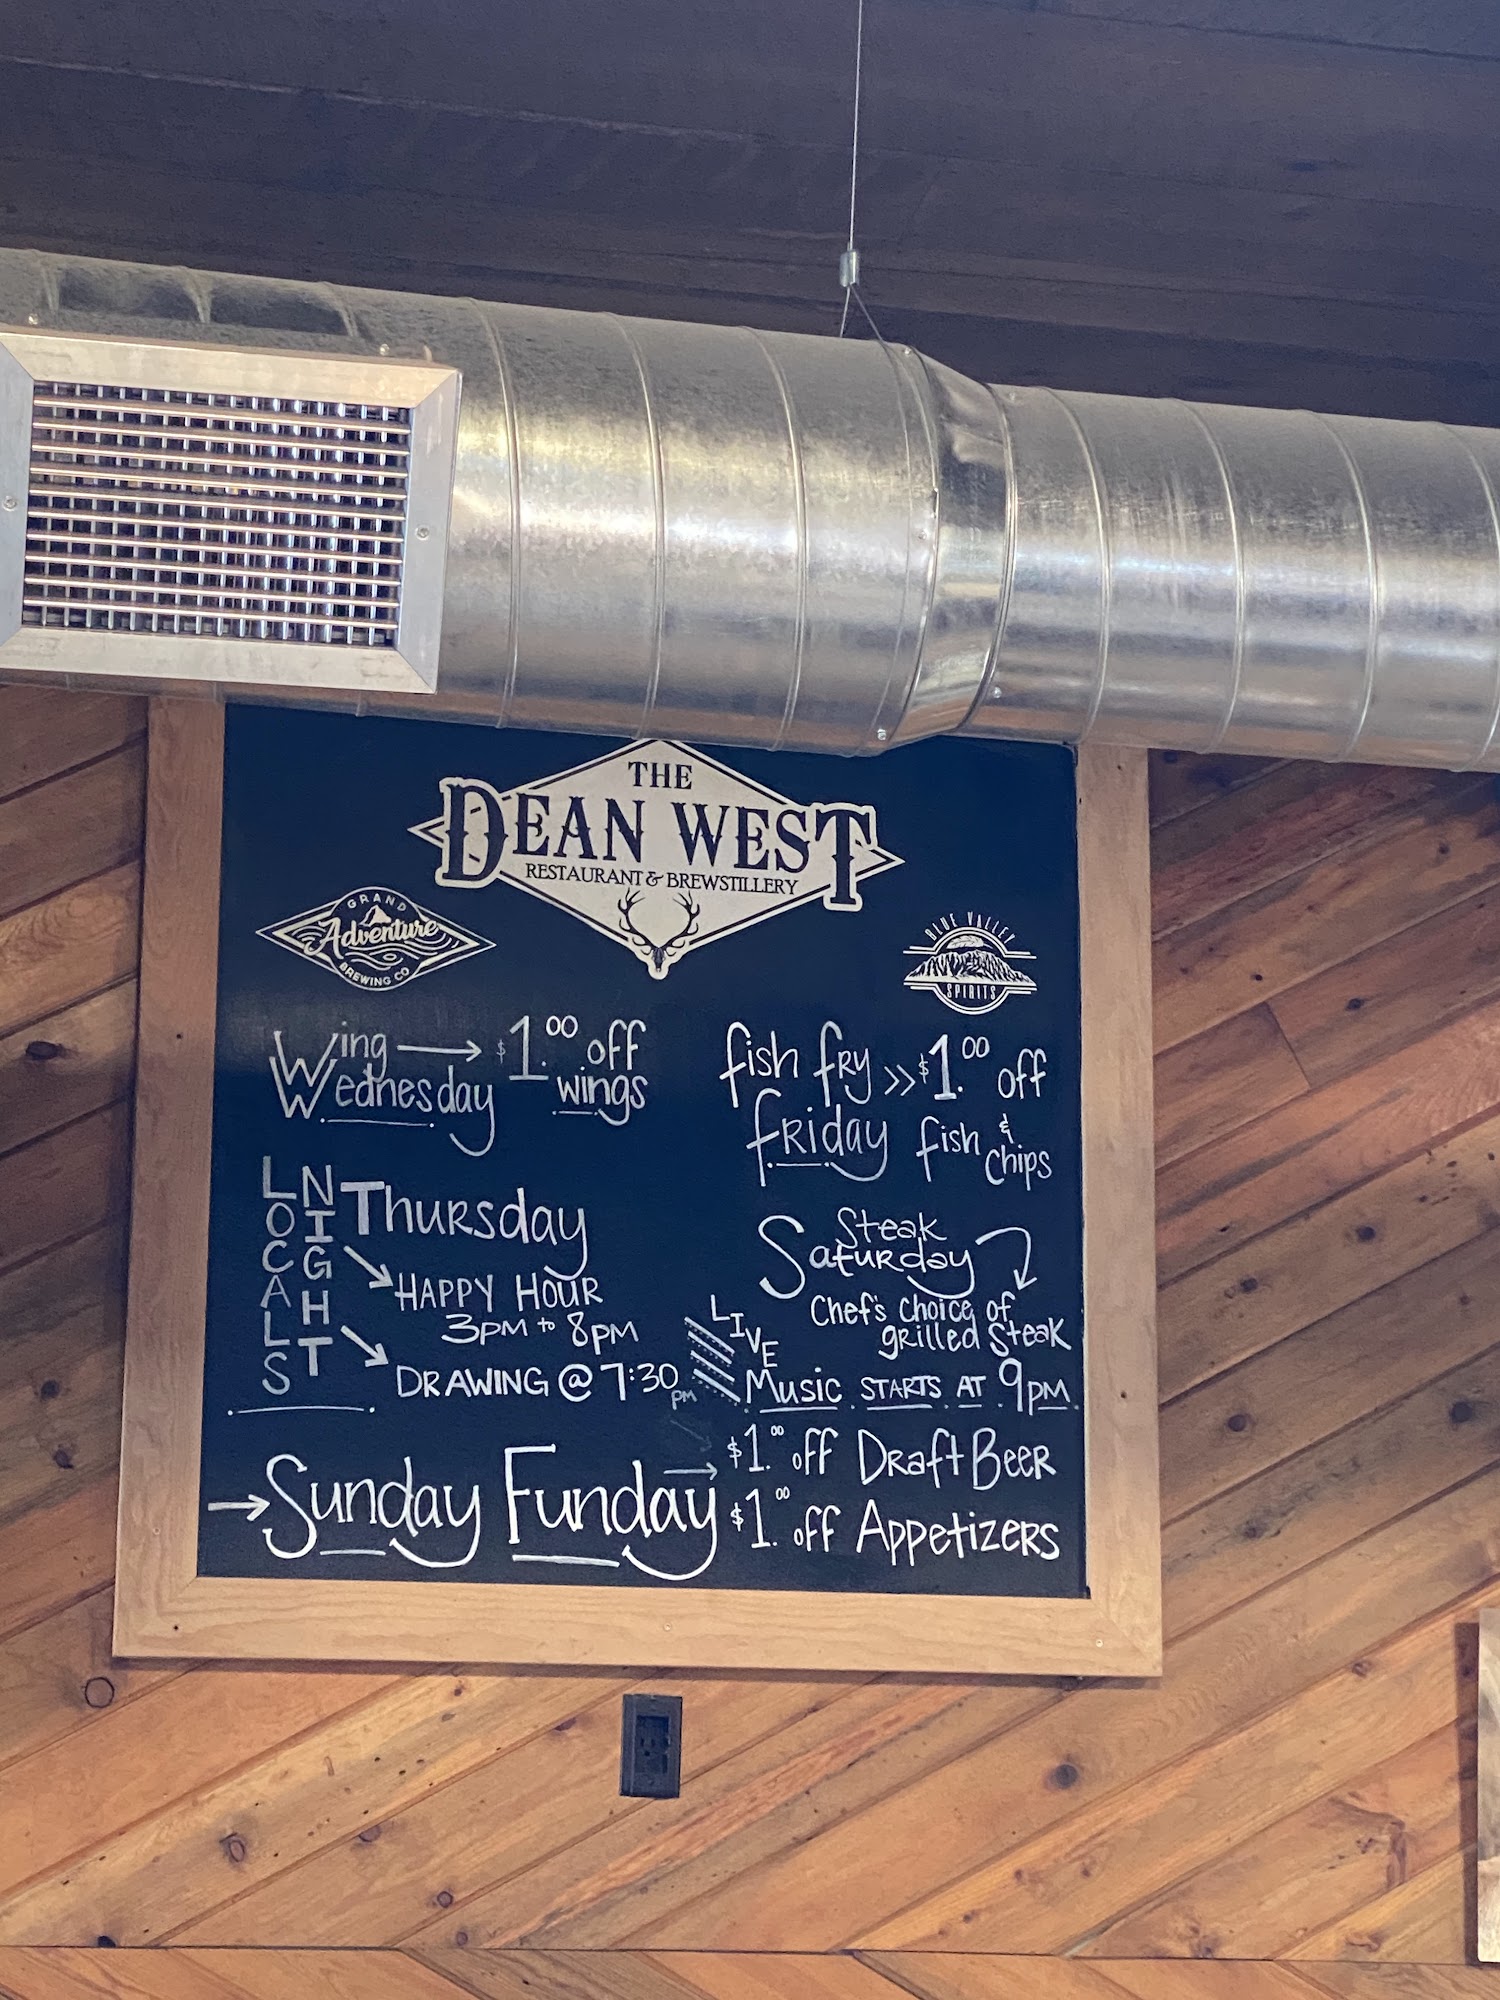 THE
DEAN WEST
RESTAURANT & BREWSTILLERY
GRAND
Adventure
BREWING CO
BLUE VALLEY
SPIRITS
Wing → $1.00 off
Wednesday wings
fish fry >> $1.00 off
friday fish & chips
LOCALS
NIGHT
Thursday
HAPPY HOUR
3PM to 8PM
DRAWING @ 7:30 PM
Steak
Saturday
Chef's choice of
grilled Steak
LIVE
Music STARTS AT 9PM
→ Sunday Funday
→ $1.00 off Draft Beer
$1.00 off Appetizers